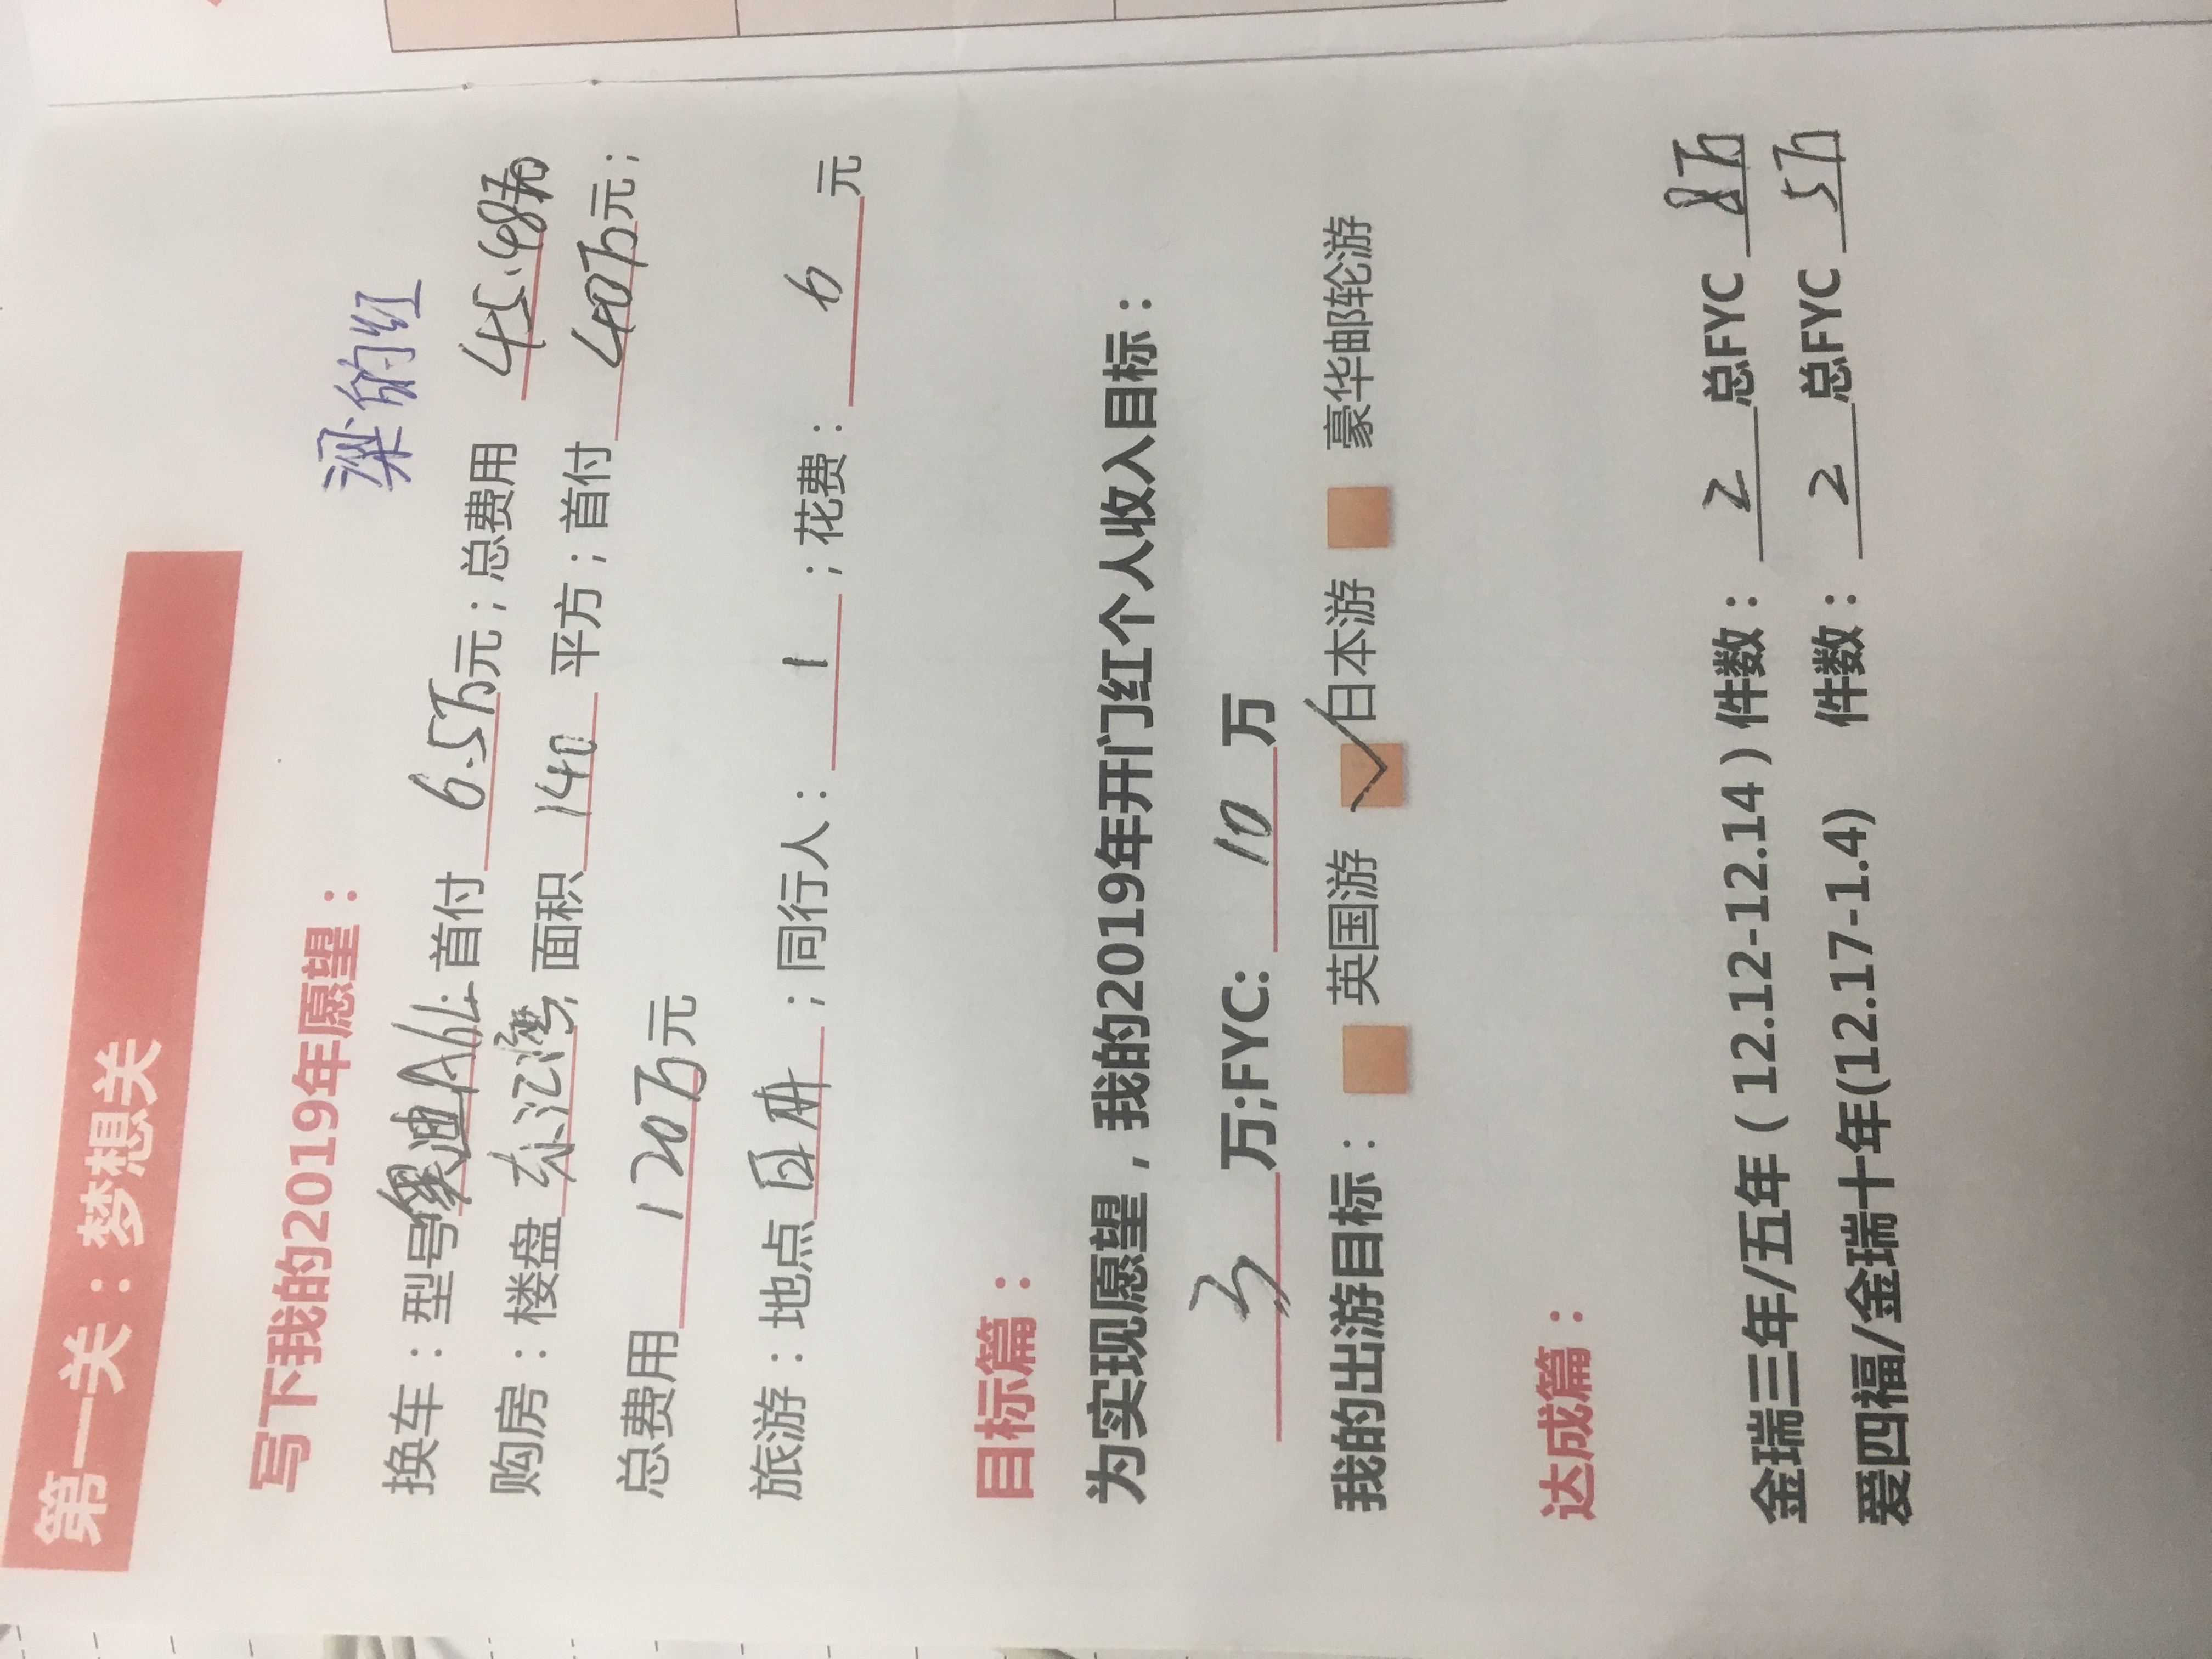 第一关：梦想关
写下我的2019年愿望：
换车：型号奥迪A6L；首付6.5万元；总费用45.48万
购房：楼盘东江湾；面积140平方；首付40万元；
总费用120万元
旅游：地点；同行人：1；花费：6元
目标篇：
为实现愿望，我的2019年开门红个人收入目标：
3万;FYC:10万
我的出游目标：英国游 ✓日本游 豪华邮轮游
达成篇：
金瑞三年/五年（12.12-12.14）件数：2总FYC 8万
爱四福/金瑞十年(12.17-1.4) 件数：2总FYC 5万